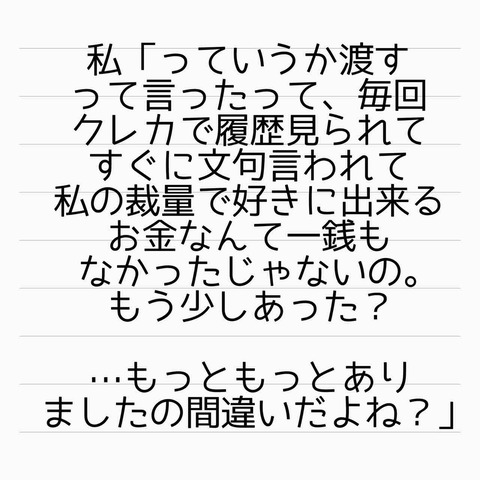 私「っていうか渡す
って言ったって、毎回
クレカで履歴見られて
すぐに文句言われて
私の裁量で好きに出来る
お金なんて一銭も
なかったじゃないの。
もう少しあった？
…もっともっとあり
ましたの間違いだよね？」